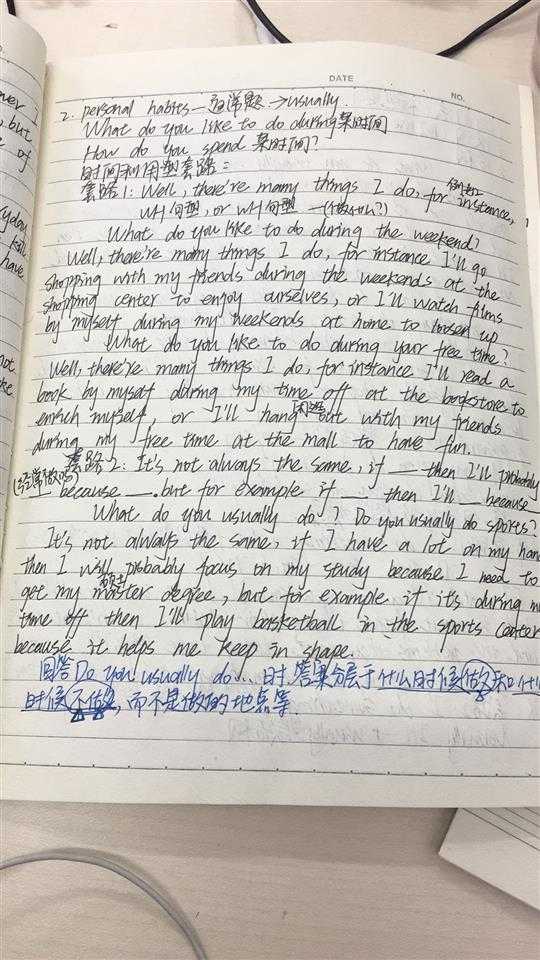 DATE
NO.
2. personal habits — 通常题 → usually.
What do you like to do during某时间
How do you spend 某时间?
时间利用型套路:
套路1: Well, there're many things I do, for instance, 例如
WH句型, or WH句型 — (做什么?)
What do you like to do during the weekend?
Well, there're many things I do, for instance I'll go
shopping with my friends during the weekends at the
shopping center to enjoy ourselves, or I'll watch films
by myself during my weekends at home to loosen up
What do you like to do during your free time?
Well, there're many things I do, for instance I'll read a
book by myself during my time off at the bookstore to
enrich myself, or I'll hang out with my friends 闲逛
during my free time at the mall to have fun.
套路2: It's not always the same, if __ then I'll probably
(经常做吗) __ because __. but for example if __ then I'll __ because
What do you usually do? Do you usually do sports?
It's not always the same, if I have a lot on my han
then I will probably focus on my study because I need to
get my master degree, but for example if its during m 硕士
time off then I'll play basketball in the sports center
because it helps me keep in shape.
回答Do you usually do... 时, 答案分层于什么时候做和什
时候不做, 而不是做的地点等.
ver I
but
e of
kill
have
not.
ke